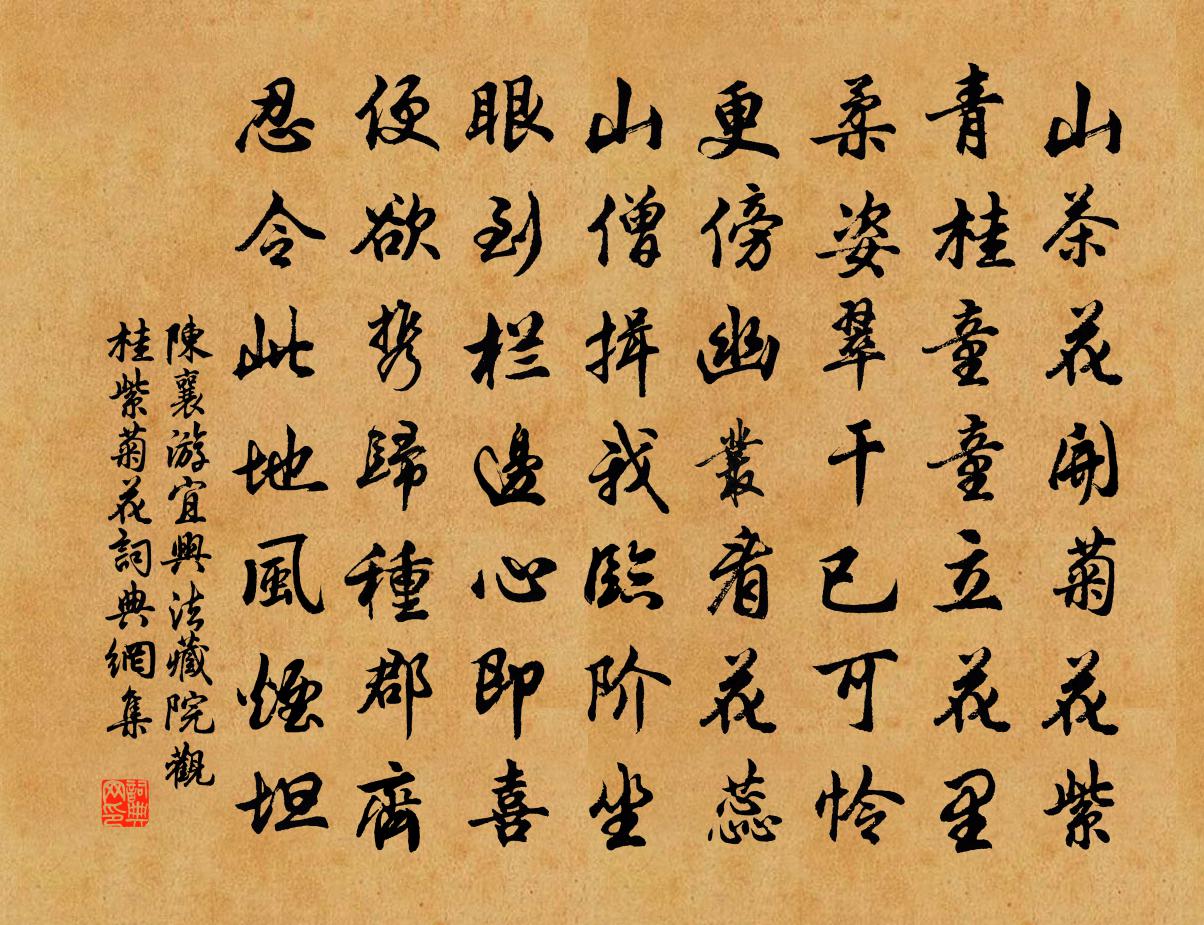 山茶花開菊花紫
青桂童童立花里
柔姿翠干已可怜
更傍幽叢看花蕊
山僧揖我臨阶坐
眼到栏邊心即喜
便欲携歸種郡齋
忍令此地風煙坦
陳襄游宜興法藏院觀
桂紫菊花詞典網集
詞典网印